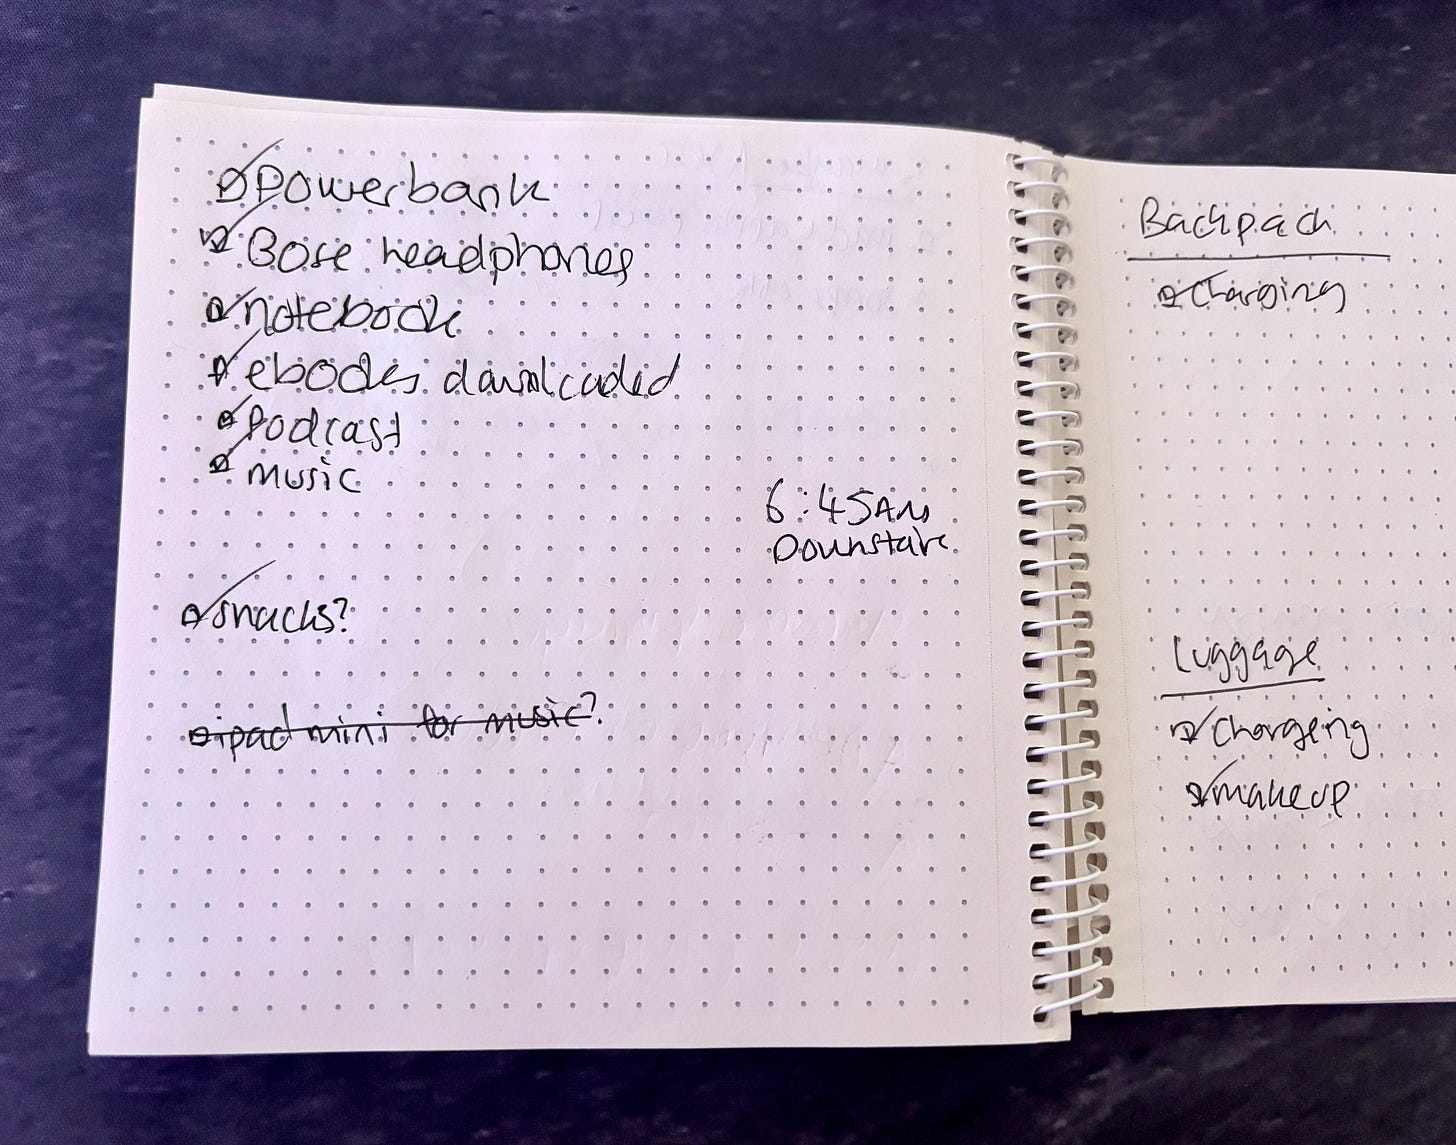 Powerbank
Bose headphones
notebook
ebooks downloaded
Podcast
music
6:45AM
Downstairs
snacks?
ipad mini for music?
Backpack
Charging
Luggage
Chargeing
makeup